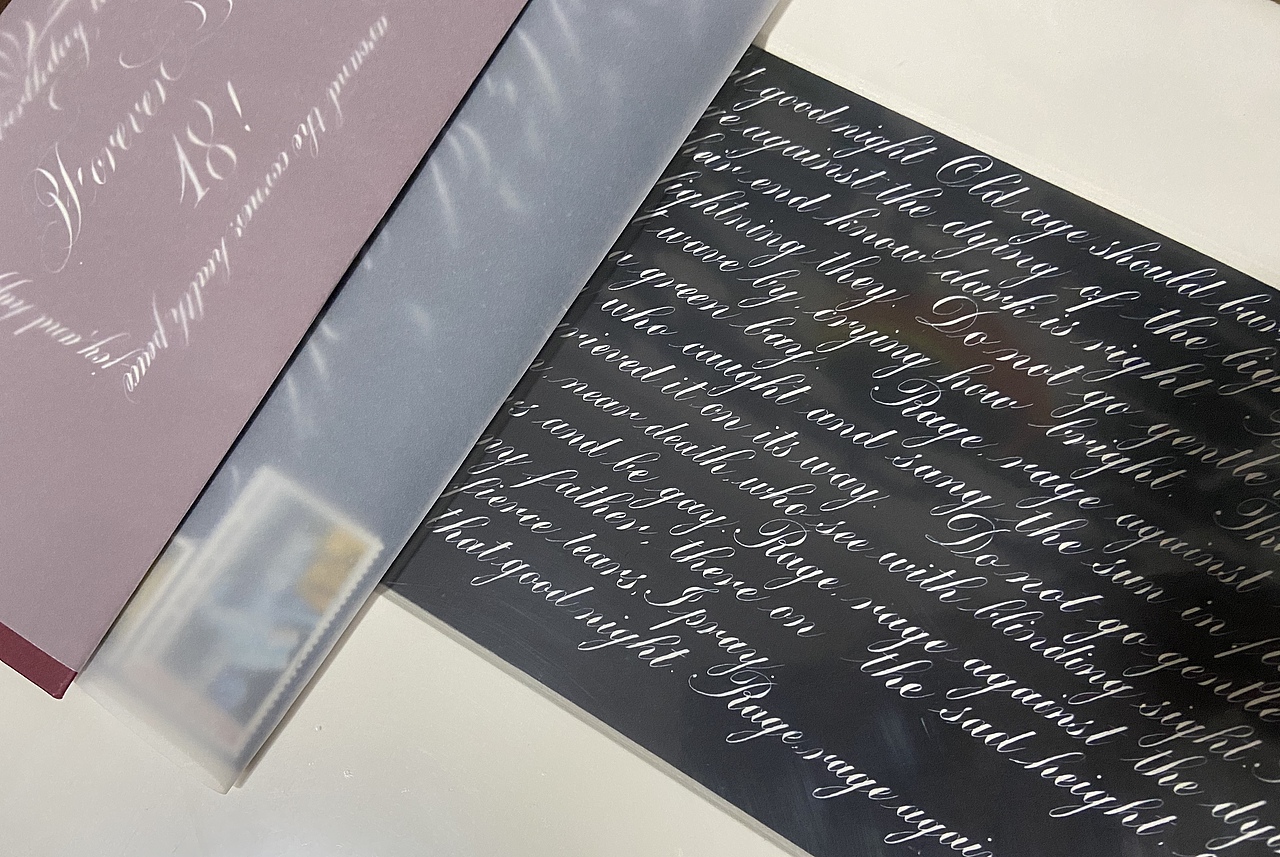 Forever
18!
around the corner: health, peace
joy, and
good night Old age should burn
against the dying of the ligh
heir end know dark is right
lightning they. Do not go gentle
wave by crying how bright.
green bay. Rage, rage against
who caught and sang the sun in
rieved it on its way. Do not go gentle
near death, who see with blinding sight.
s and be gay. Rage, rage against the dy
my father, there on the sad height.
fierce tears, I pray.
that good night. Rage, rage again